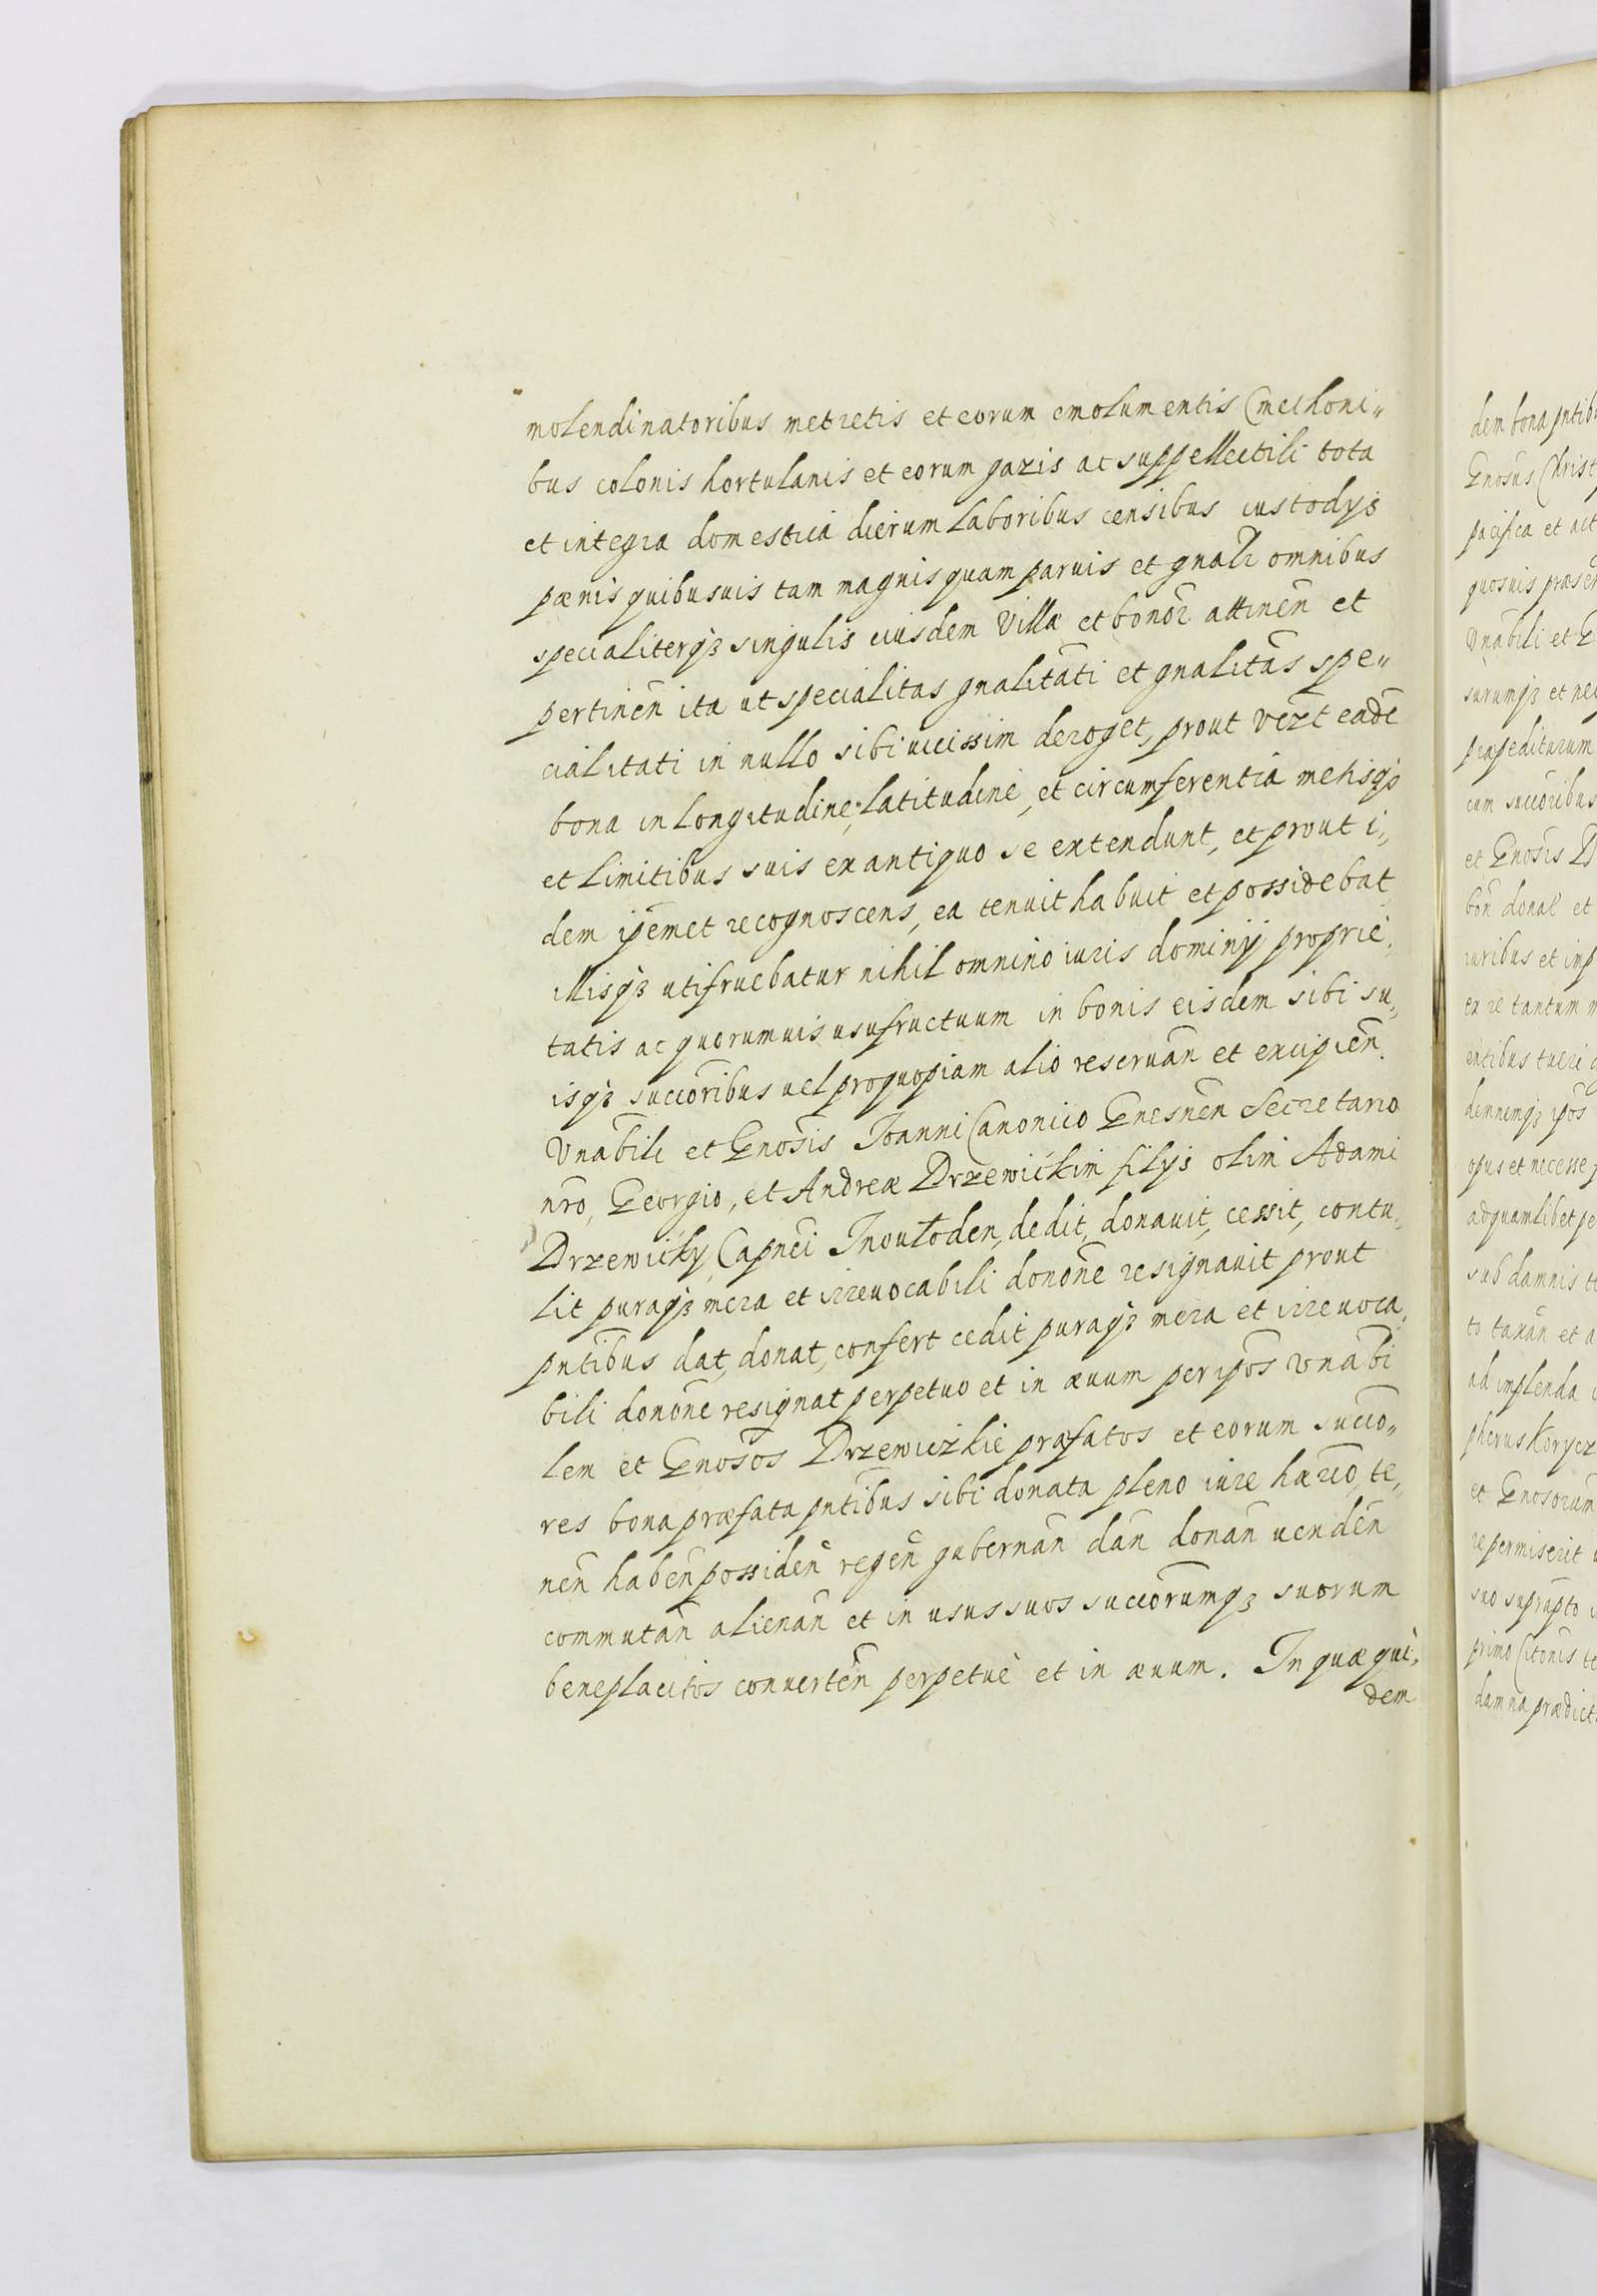 molendinatoribus metretis et eorum emolumentis Cmethoni„
bus colonis hortulanis et eorum gazis ac suppellectili tota
et integra domestica dierum laboribus censibus custodijs
pænis quibusuis tam magnis quam paruis et gnalr omnibus
specialiterqȝ singulis eiusdem Villæ et bonoꝝ attineñ et
pertineñ ita ut specialitas gnalitāti et gnalitās spe„
cialitati in nullo sibi uicissim deroget, prout vezt eadē
bona in longitudine, latitudine, et circumferentia metisqȝ
et limitibus suis ex antiquo se extendunt, et prout i„
dem ip̄emet recognoscens, ea tenuit habuit et possidebat
illisqȝ utifruebatur nihil omnino iuris dominij proprie„
tatis ac quorumuis usufructuum in bonis eisdem sibi su„
isqȝ succōribus uel proquopiam alio reseruañ et excipieñ.
Vnābili et Gnōsis Ioanni Canonico Gnesneñ Secretario
nrō, Georgio, et Andreæ Drzewickim filijs olim Adami
Drzewicky Capnēi Inoulodeñ, dedit, donauit, cessit, contu„
lit puraqȝ mera et irreuocabili donōne resignauit prout
pntībus dat, donat, confert cedit puraqȝ mera et irreuoca„
bili donōne resignat perpetuo et in æuum per ip̄os vnabi
lem et Gnōsos Drzewiczkie præfatos et eorum succo„
res bona præfata pntībus sibi donata pleno iure hærīo, te„
neñ habeñ possideñ regeñ gubernañ dañ donañ uendeñ
commutañ alienañ et in usus suos succōrumqȝ suorum
beneplacitos conuerteñ perpetue et in æuum. In quæ qui„
dem
dem bona pntib
Gnosus Christ
pacifica et act
quosuis præsen
Vnābili et G
surumqȝ et ne
præpediturum
cum succōribus
et Gnosis D
boñ donat et
iuribus et imp
ex re tantum m
entibus tueri
demnemqȝ ip̄os
opus et necesse
adquamlibet pe
sub damnis t
to taxañ et a
ad implenda
pherus Korycz
et Gnosorum
re permiserit
suo suprapto
primo Citonis te
damna prædict